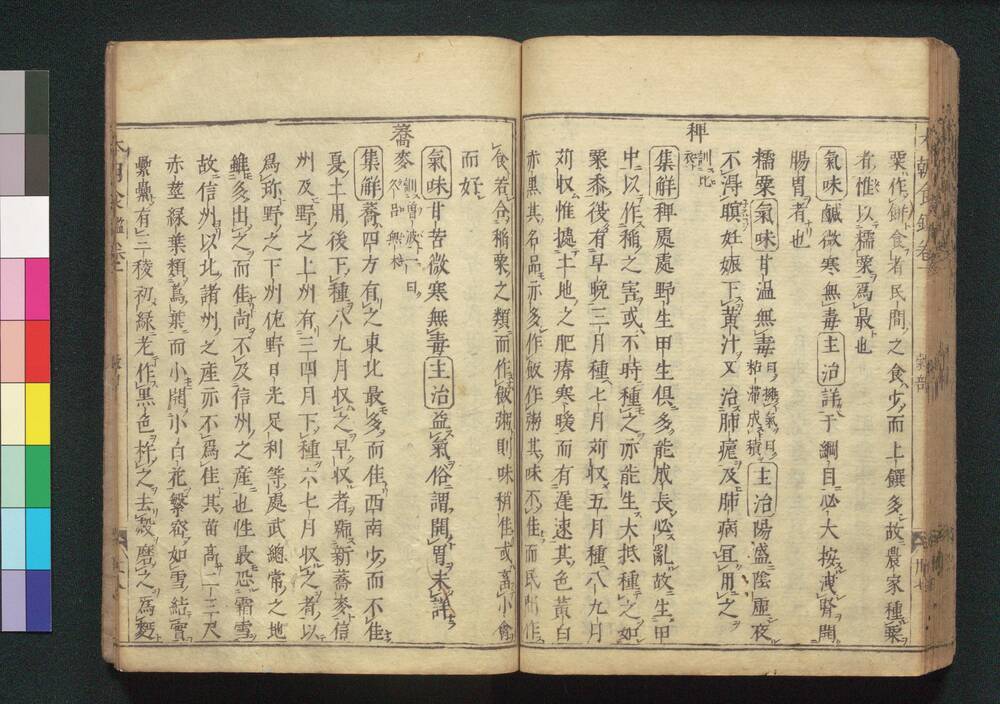 粟作餅食者民間之食少而上饌多故農家種粟
者惟以糯粟爲最也
氣味鹹微寒無毒主治詳于綱目必大按洩腎開
腸胃者也
糯粟氣味甘温無毒主治陽盛陰虛夜
不得瞑妊娠下黃汁又治肺瘧及肺病宜用之
稗訓比
集解稗處處野生甲生俱多能成長必亂故生甲
中以作稲之害或不時種之亦能生大抵種之如
粟黍後有早晩三月種七月苅収五月種八九月
苅収惟據土地之肥瘠寒暖而有遲速其色黃白
赤黒其名品亦多作飯作粥其味不佳而民間作
食若合稲粟之類而作飯粥則味稍佳或畜小禽
而好
氣味甘苦微寒無毒主治益氣俗謂開胃未詳
蕎麥
集解蕎四方有之東北最多而佳西南少而不佳
夏土用後下種八九月収之早収者號新蕎麥信
州及野之上州有三四月下種六七月収之者以
爲珎野之下州佐野日光足利等處武總常之地
雖多出之而佳尚不及信州之産也性最恐霜雪
故信州以北諸州之産亦不爲佳其苗高一二三尺
赤莖緑葉類蔦葉而小開小白花繁密如雪結實
纍纍有三稜初緑老作黒色杵之去殻磨之爲麪